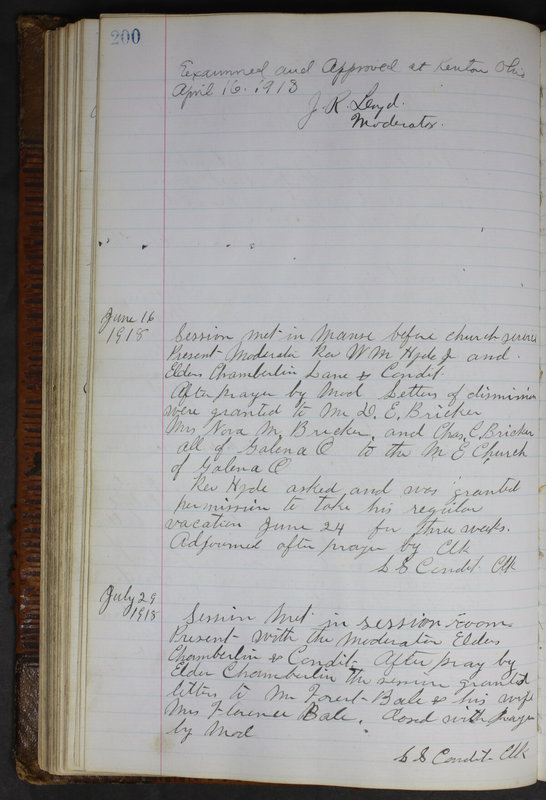 200
Exzamined and Approved at Kenton Ohio
April 16. 1913
J. R. Loyd.
Moderator.
June 16
1918
Session met in Manse before church service
Present Moderator Rev W. M. Hyde & and
Elders Chamberlin Lane & Condit.
After prayer by Mod Letters of dismission
were granted to Mr D. E. Bricker
Mrs Nova M. Bricker, and Chas. C. Bricker
all of Galena O to the M E Church
of Galena O
Rev Hyde asked and was granted
permission to take his regular
vacation June 24 for three weeks.
Adjourned after prayer by Clk
S S Condit Clk
July 29
1918
Session met in session room
Present with the Moderator Elders
Chamberlin & Condit. After pray by
Elder Chamberlin the session granted
letters to Mr Forest Bale & his wife
Mrs Florence Bale. Closed with prayer
by Mod
S S Condit Clk